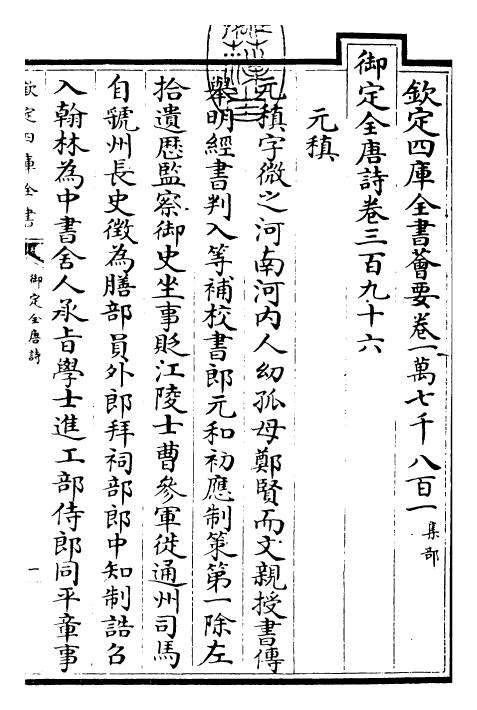 欽定四庫全書薈要卷一萬七千八百一 集部
御定全唐詩卷三百九十六
元稹
元稹字微之河南河内人幼孤母鄭賢而文親授書傳
舉明經書判入等補校書郎元和初應制策第一除左
拾遺歴監察御史坐事貶江陵士曹參軍徙通州司馬
自虢州長史徴為膳部員外郎拜祠部郎中知制誥召
入翰林為中書舍人承旨學士進工部侍郎同平章事
欽定四庫全書 御定全唐詩 一